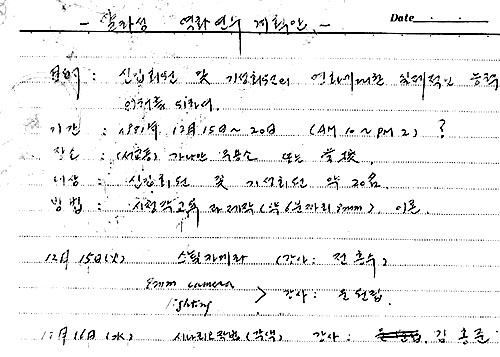 - 얄라성 영화연수 계획안. -
Date
목적 : 신입회원 및 기성회원의 영화에 대한 실제적인 능력
이해를 위하여.
기간 : 1981年 12月 15日~20日 (AM 10 ~ PM 2) ?
장소 : (서교동) 가나안 사무소 또는 學校.
대상 : 신입회원 및 기성회원 약 20名.
방법 : 시청각교육과 제작 (약 6분짜리 8mm), 이론.
12月 15日(火) 스틸카메라 (강사 : 전흥수)
8mm camera
lighting > 강사 : 문원립.
12月 16日(水) 시나리오작법(각색) 강사 : 김홍준